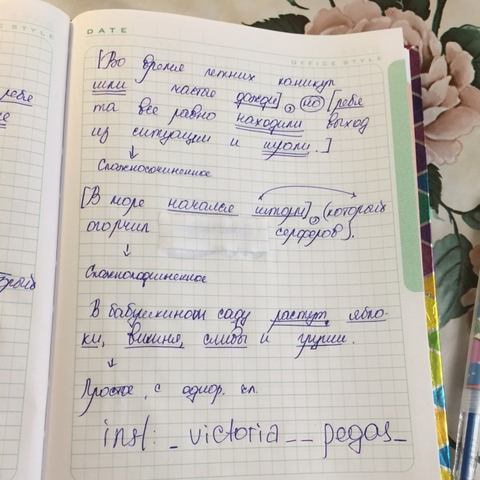 DATE
OFFICE STYLE
[Во время летних каникул
шли частые дожди], но [ребя
та все равно находили выход
из ситуации и играли.]
Сложносочиненное
[В море начался шторм], (который
огорчил серферов).
Сложноподчиненное
В бабушкином саду растут ябло-
ки, вишня, сливы и груши.
Простое, с однор. чл.
inst: _victoria__pegas_
ребя